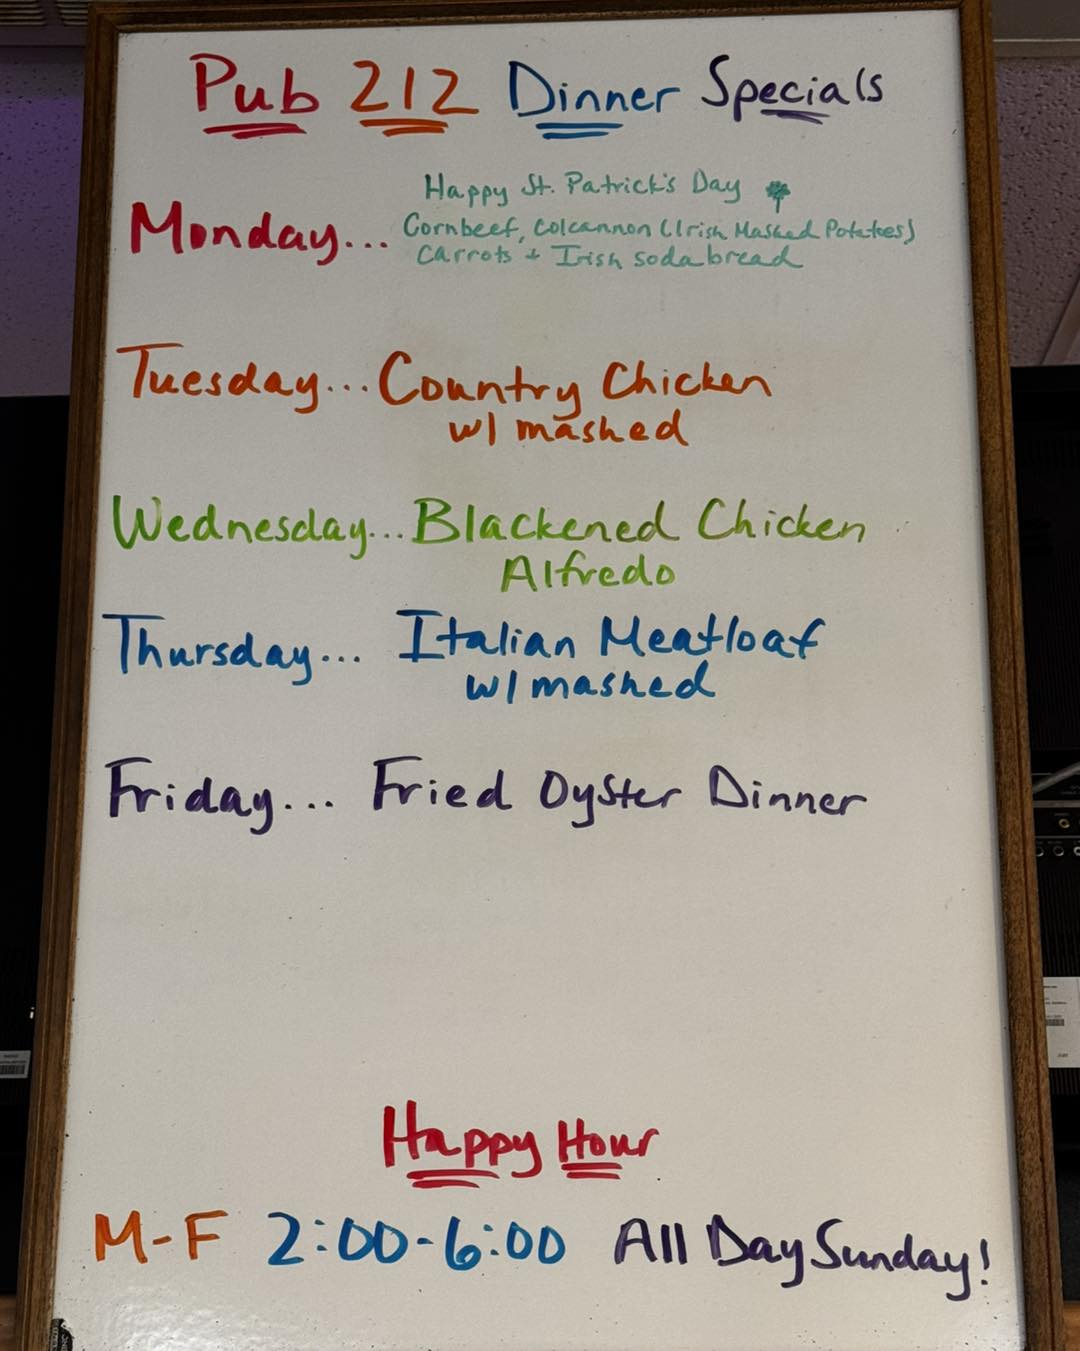 Pub 212 Dinner Specials
Happy St. Patrick's Day
Monday... Cornbeef, Colcannon (Irish Mashed Potatoes)
Carrots + Irish soda bread
Tuesday... Country Chicken
w/ mashed
Wednesday... Blackened Chicken
Alfredo
Thursday... Italian Meatloaf
w/ mashed
Friday... Fried Oyster Dinner
Happy Hour
M-F 2:00-6:00 All Day Sunday!